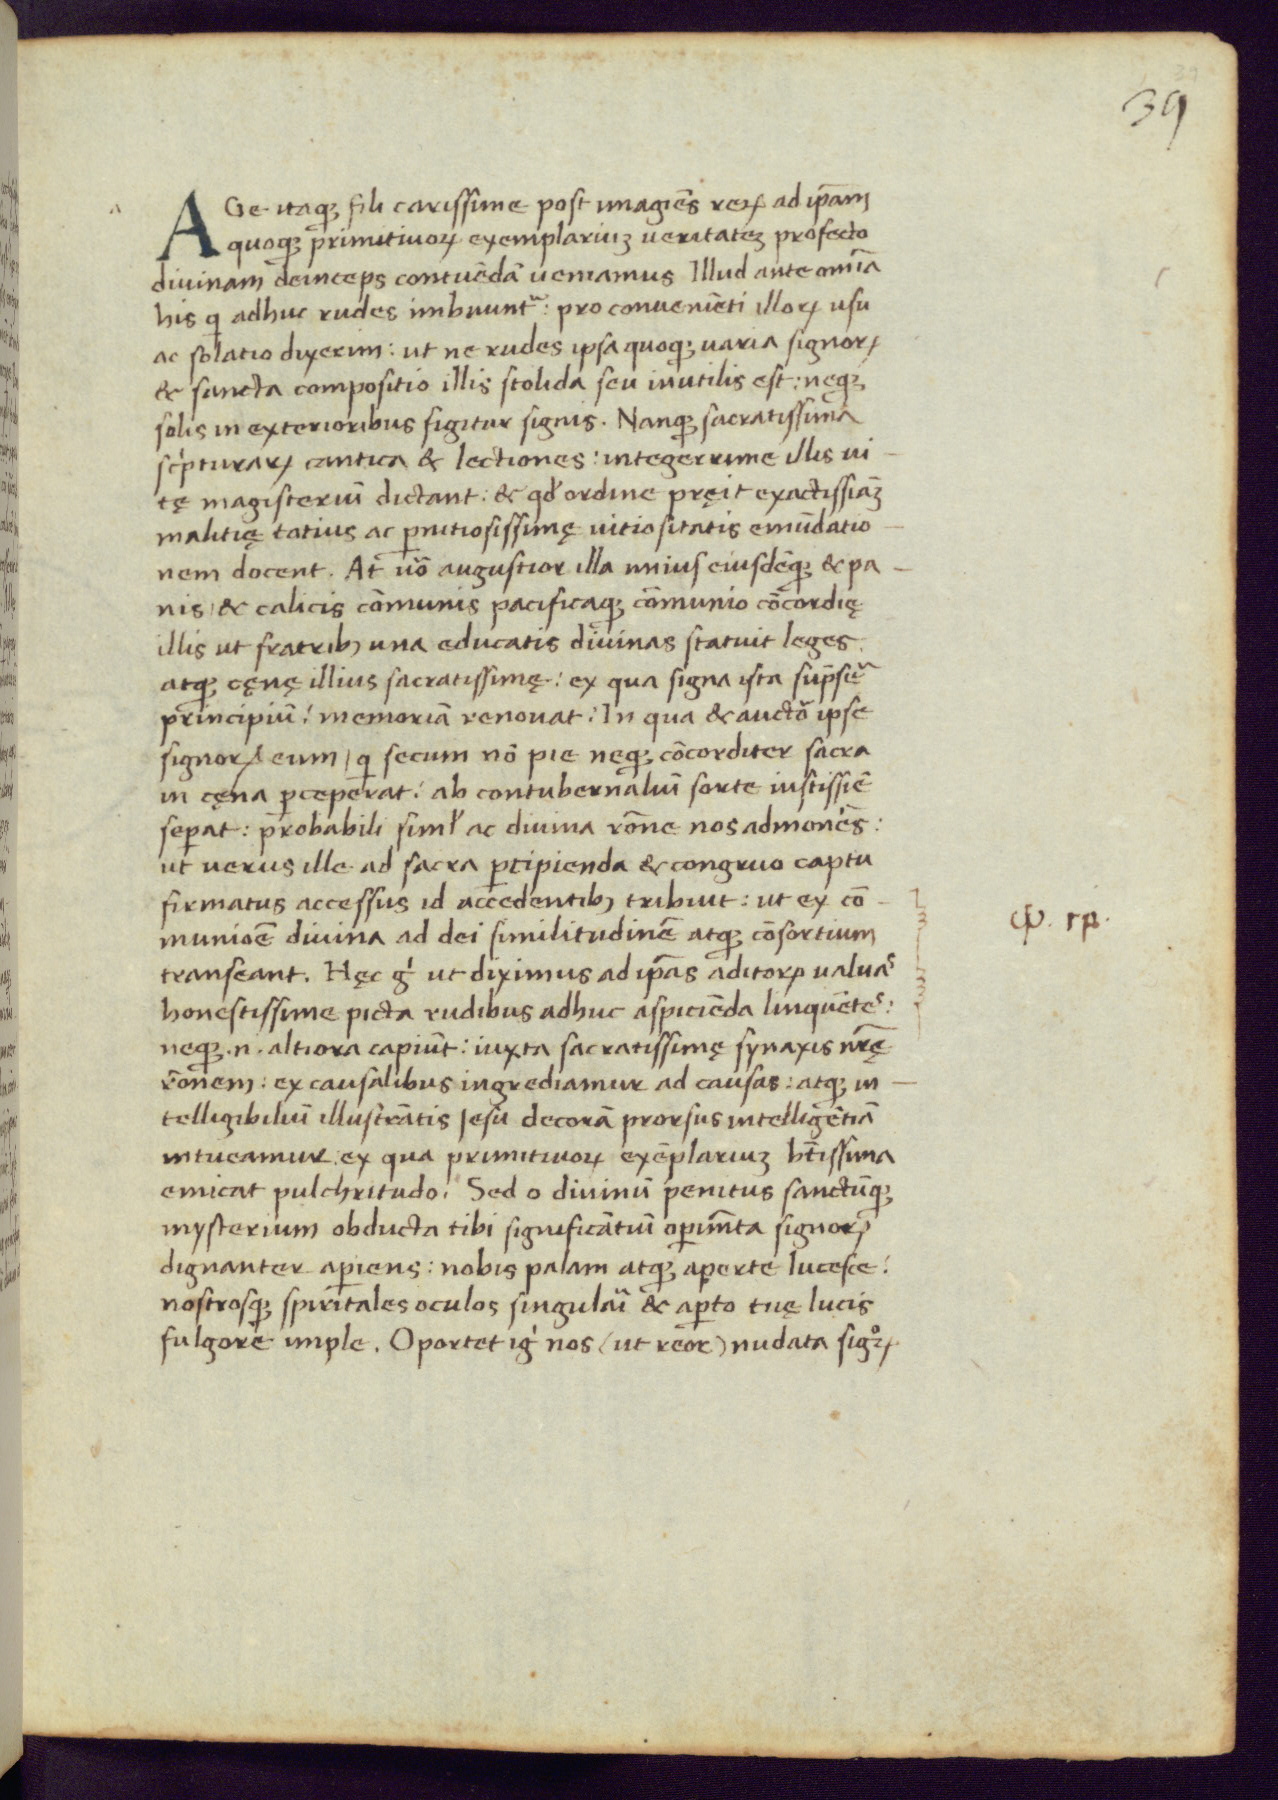 39
AGe itaqꝫ fili carissime post imagiēs reꝝ ad ip̄am
quoqꝫ primitiuoꝝ exemplariuꝫ ueritateꝫ profecto
diuinam deinceps contuēdā ueniamus Illud ante om̄ia
his q adhuc rudes imbuunt᷑: pro conueniēti illoꝝ usu
ac solatio dixerim: ut ne rudes ipsa quoqꝫ uaria signoꝝ
& sancta compositio illis stolida seu inutilis est: neqꝫ
solis in exterioribus figitur signis. Nanqꝫ sacratissima
scͥpturaꝝ cantica & lectiones: integerrime illis ui-
tę magisteriū dictant: & qđ ordine pręit exactissiāꝫ
malitię tatius ac ꝑnitiosissimę uitiositatis emūdatio-
nem docent. At ūo augustior illa unius eiusdēqꝫ & pa-
nis & calicis cōmunis pacificaqꝫ cōmunio cōcordię
illis ut fratribꝫ una educatis diuinas statuit leges.
atqꝫ cęnę illius sacratissimę: ex qua signa ista sūpsēr̄
principiū: memoriā renouat: In qua & auctō ipse
signoꝝ eum / q secum nō pie neqꝫ cōcorditer sacra
in cęna ꝑceperat: ab contubernaliū sorte iustissiē
seꝑat: probabili simł ac diuina rōne nos admonēs:
ut uerus ille ad sacra ꝑcipienda & congruo captu
firmatus accessus id accedentibꝫ tribuit: ut ex cō-
munioē diuina ad dei similitudinē atqꝫ cōsortium
transeant. Hęc gͥ ut diximus ad ip̄as aditoꝝ ualuas
honestissime picta rudibus adhuc aspiciēda linquētes:
neqꝫ .n. altiora capiūt: iuxta sacratissimę synaxis nr̄ę
rōnem: ex causalibus ingrediamur ad causas: atqꝫ in-
telligibiliū illustrātis Jesu decorā prorsus intelligētiā
intueamur: ex qua primitiuoꝝ exēplariuꝫ bt̄issima
emicat pulchritudo. Sed o diuinū penitus sanctūqꝫ
mysterium obducta tibi significātiū oꝑim̄ta signoꝝ
dignanter aꝑiens: nobis palam atqꝫ aperte lucesce:
nostrosqꝫ spiritales oculos singulari & aꝑto tuę lucis
fulgore imple. Oportet igͥ nos (ut reor) nudata sigoꝝ